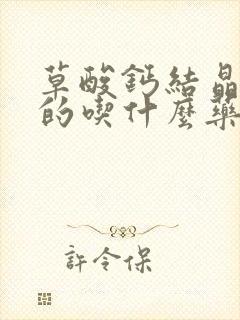 草酸鈣結晶
的喫什麼藥
許令保